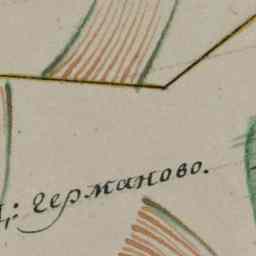 Д: германово.